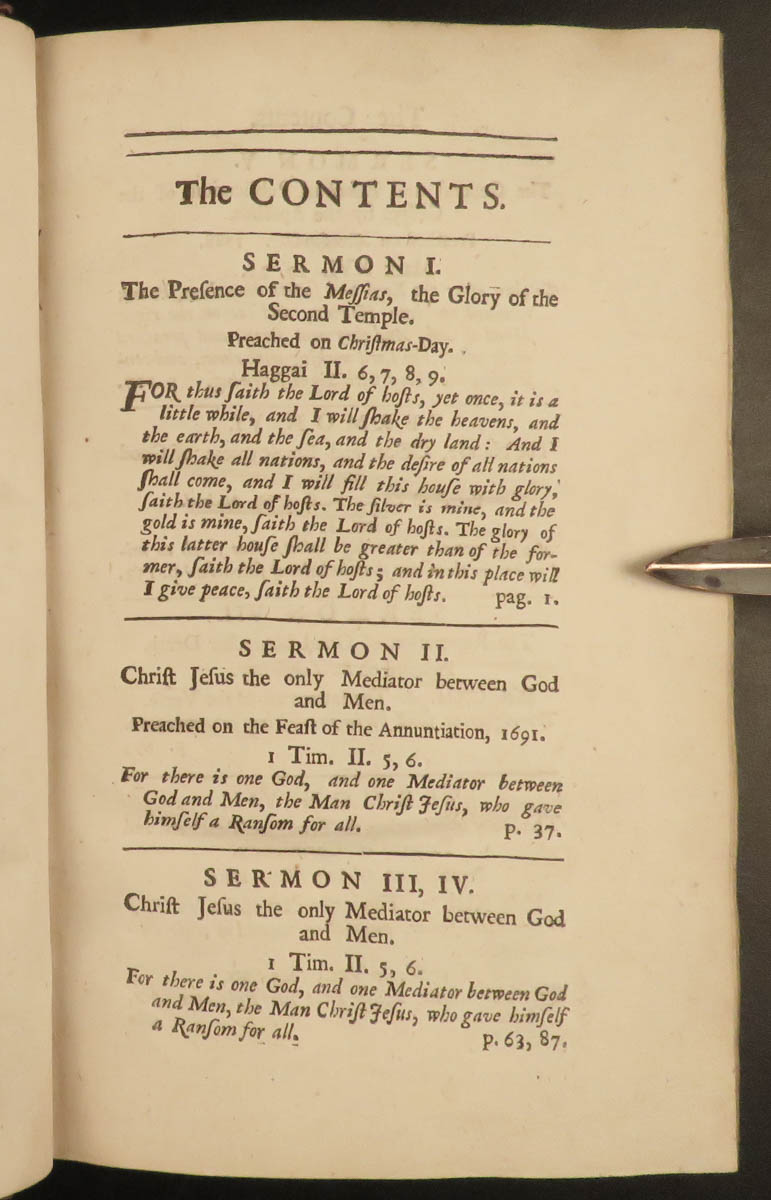 The CONTENTS.
SERMON I.
The Preſence of the Meſſias, the Glory of the
Second Temple.
Preached on Chriſtmas-Day.
Haggai II. 6, 7, 8, 9.
FOR thus ſaith the Lord of hoſts, yet once, it is a
little while, and I will ſhake the heavens, and
the earth, and the ſea, and the dry land: And I
will ſhake all nations, and the deſire of all nations
ſhall come, and I will fill this houſe with glory,
ſaith the Lord of hoſts. The ſilver is mine, and the
gold is mine, ſaith the Lord of hoſts. The glory of
this latter houſe ſhall be greater than of the for-
mer, ſaith the Lord of hoſts; and in this place will
I give peace, ſaith the Lord of hoſts. pag. 1.
SERMON II.
Chriſt Jeſus the only Mediator between God
and Men.
Preached on the Feaſt of the Annuntiation, 1691.
1 Tim. II. 5, 6.
For there is one God, and one Mediator between
God and Men, the Man Chriſt Jeſus, who gave
himſelf a Ranſom for all. p. 37.
SERMON III, IV.
Chriſt Jeſus the only Mediator between God
and Men.
1 Tim. II. 5, 6.
For there is one God, and one Mediator between God
and Men, the Man Chriſt Jeſus, who gave himſelf
a Ranſom for all. p. 63, 87.